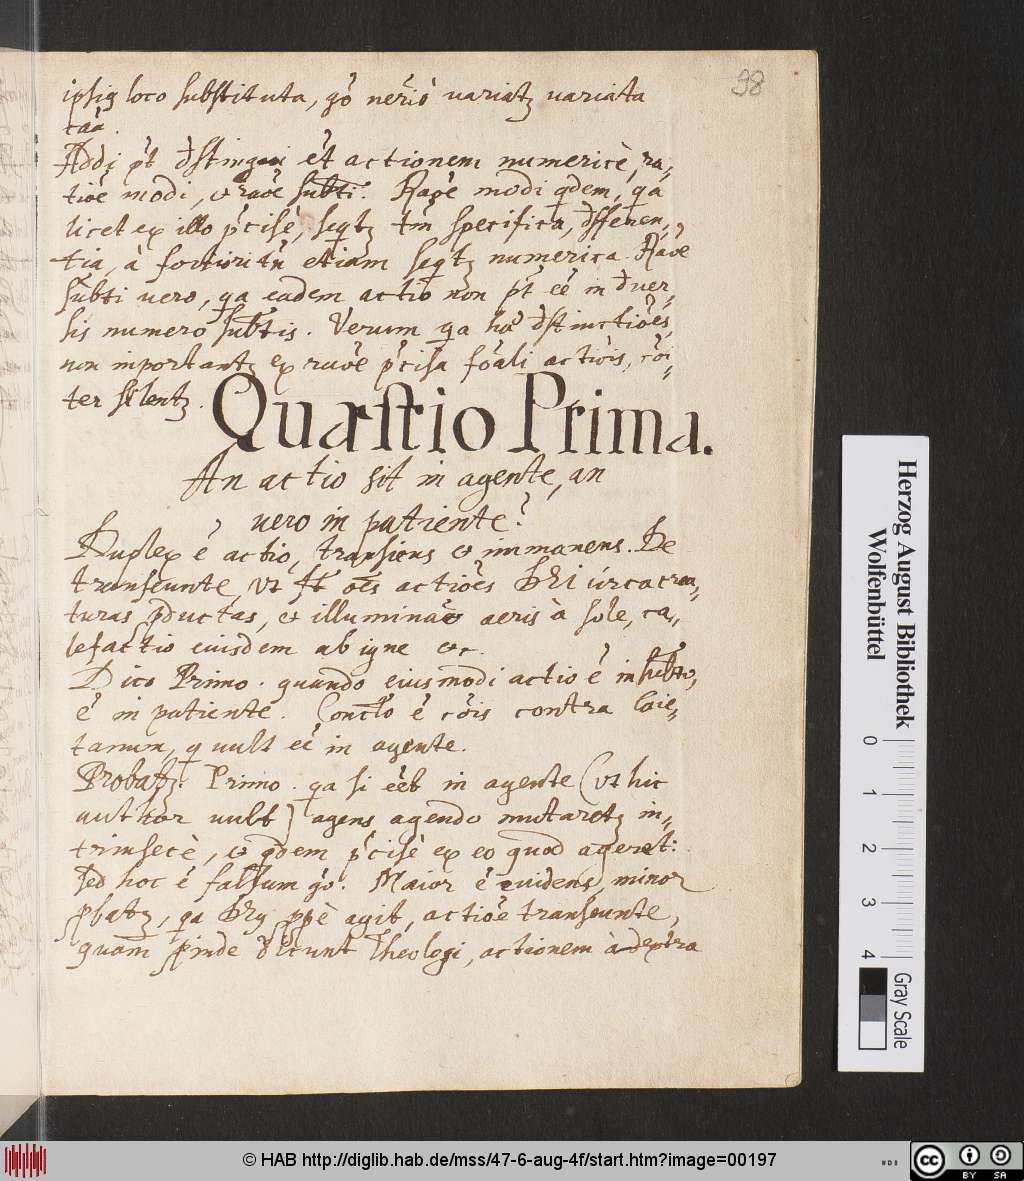 98
ipsius loco substituta, gõ nẽriò variatʒ variata
caã.
Addi p̃t dĩstingui ẽt actionem numericè, ra,
tiõe modi, et raõe subti. Raõe modi qdem, qa
licet ex illo p̃cisè, seqtʒ tm̃ specifica, dĩfferen,,
tia, à fortiori tñ etiam seqtʒ numerica. Raõe
subti vero, qa eadem actio non p̃t eẽ in dĩver-
sis numero subtis. Verum qa hæ dĩstinctiões,
non inportantʒ ex raõe p̃cisa foãli actiõis, cõi-
ter silentʒ.
Quæstio Prima.
An actio sit in agente, an
vero in patiente?
Duplex ẽ actio, transiens et immanens. De
transeunte, vt st oẽs actiões circa crea,,
turas pductas, et illuminaõ aeris à sole, ca,,
lefactio eiusdem ab igne etc.
Dico Primo. quando eiusmodi actio ẽ in subto,
ẽ in patiente. Conclo ẽ cõis contra Caie,,
tanum, q vult eẽ in agente.
Probatʒ. Primo. qa si eẽt in agente (vt hic
author vult) agens agendo mutaretʒ in,,
trinsecè, et qdem p̃cisè ex eo quod ageret:
Sed hoc ẽ falsum gõ. Maior ẽ evidens, minor
pbatʒ, qa ppè agit, actiõe transeunte,
quam pinde dĩcunt Theologi, actionem à dextra
Herzog August Bibliothek
Wolfenbüttel
0 1 2 3 4
Gray Scale
© HAB http://diglib.hab.de/mss/47-6-aug-4f/start.htm?image=00197
cc BY SA